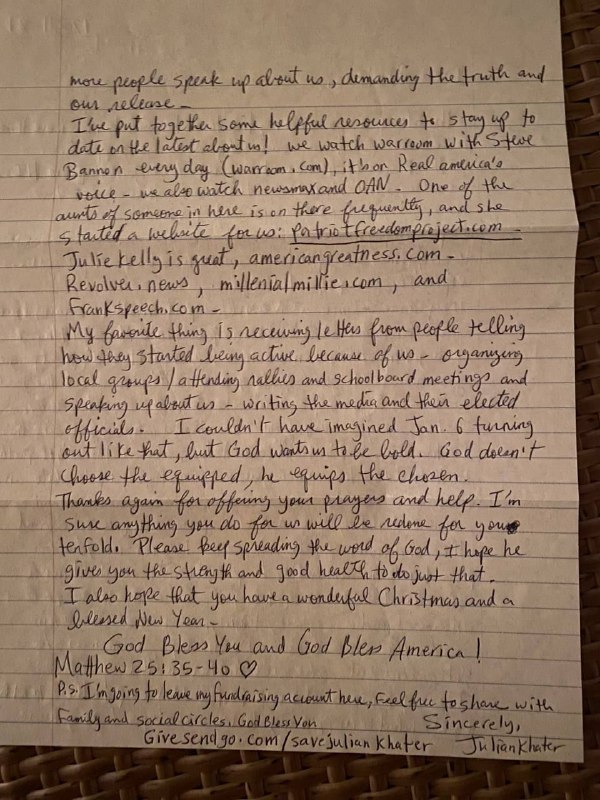 more people speak up about us, demanding the truth and
our release -
I've put together some helpful resources to stay up to
date on the latest about us! we watch warroom with Steve
Bannon every day (warroom.com), it's on Real america's
voice - we also watch newsmax and OAN - One of the
aunts of someone in here is on there frequently, and she
started a website for us: patriotfreedomproject.com -
Julie Kelly is great, americangreatness.com -
Revolver.news, millenialmillie.com, and
Frankspeech.com -
My favorite thing is receiving letters from people telling
how they started being active because of us - organizing
local groups/attending rallies and schoolboard meetings and
speaking up about us - writing the media and their elected
officials. I couldn't have imagined Jan. 6 turning
out like that, but God wants us to be bold. God doesn't
choose the equipped, he equips the chosen.
Thanks again for offering your prayers and help. I'm
sure anything you do for us will be redone for you
tenfold. Please keep spreading the word of God, I hope he
gives you the strength and good health to do just that.
I also hope that you have a wonderful Christmas and a
blessed New Year -
God Bless You and God Bless America!
Matthew 25:35-40 ♡
P.S. I'm going to leave my fundraising account here, Feel free to share with
Family and social circles. God Bless You
Sincerely,
Givesendgo.com/savejuliankhater Julian Khater